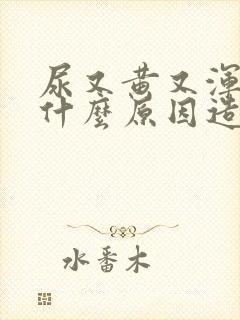 尿又黄又渾
什麼原因造
水番木